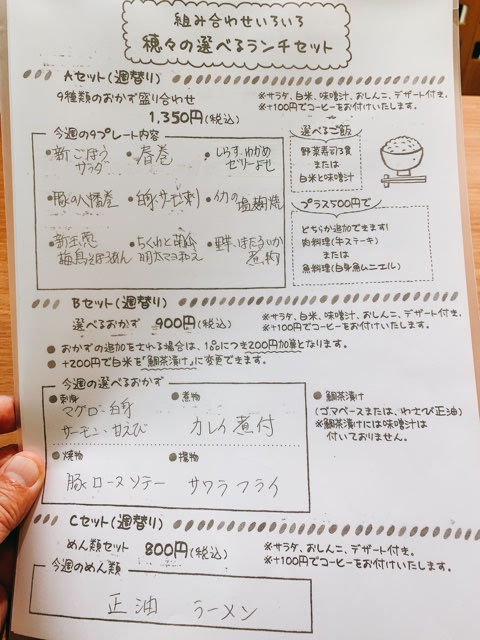 組み合わせいろいろ
穂々の選べるランチセット
Aセット(週替り)
9種類のおかず盛り合わせ
1,350円(税込)
※サラダ、白米、味噌汁、おしんこ、デザート付き。
※+100円でコーヒーをお付けいたします。
今週の9プレート内容
●新ごぼうサラダ ●春巻 ●しらす、わかめゼリーよせ
●豚の八幡巻 ●白身、サーモン刺 ●イカの塩麹焼
●新玉葱 梅鳥そぼろあん ●ちくわと 明太マヨ和え ●里芋、ほたるいか煮
選べるご飯
野菜寿司3貫
または
白米と味噌汁
プラス500円で
どちらか追加できます!
肉料理(牛ステーキ)
または
魚料理(白身魚ムニエル)
Bセット(週替り)
選べるおかず 900円(税込)
※サラダ、白米、味噌汁、おしんこ、デザート付き。
※+100円でコーヒーをお付けいたします。
● おかずの追加をされる場合は、1品につき200円加算となります。
● +200円で白米を「鯛茶漬け」に変更できます。
今週の選べるおかず
●刺身
マグロ・白身
サーモン・甘えび
●煮物
カレイ煮付
●焼物
豚ロースソテー
●揚物
サワラフライ
● 鯛茶漬け
(ゴマペースまたは、わさび正油)
※鯛茶漬けには味噌汁は
付いておりません。
Cセット(週替り)
めん類セット 800円(税込)
※サラダ、おしんこ、デザート付き。
※+100円でコーヒーをお付けいたします。
今週のめん類
正油 ラーメン